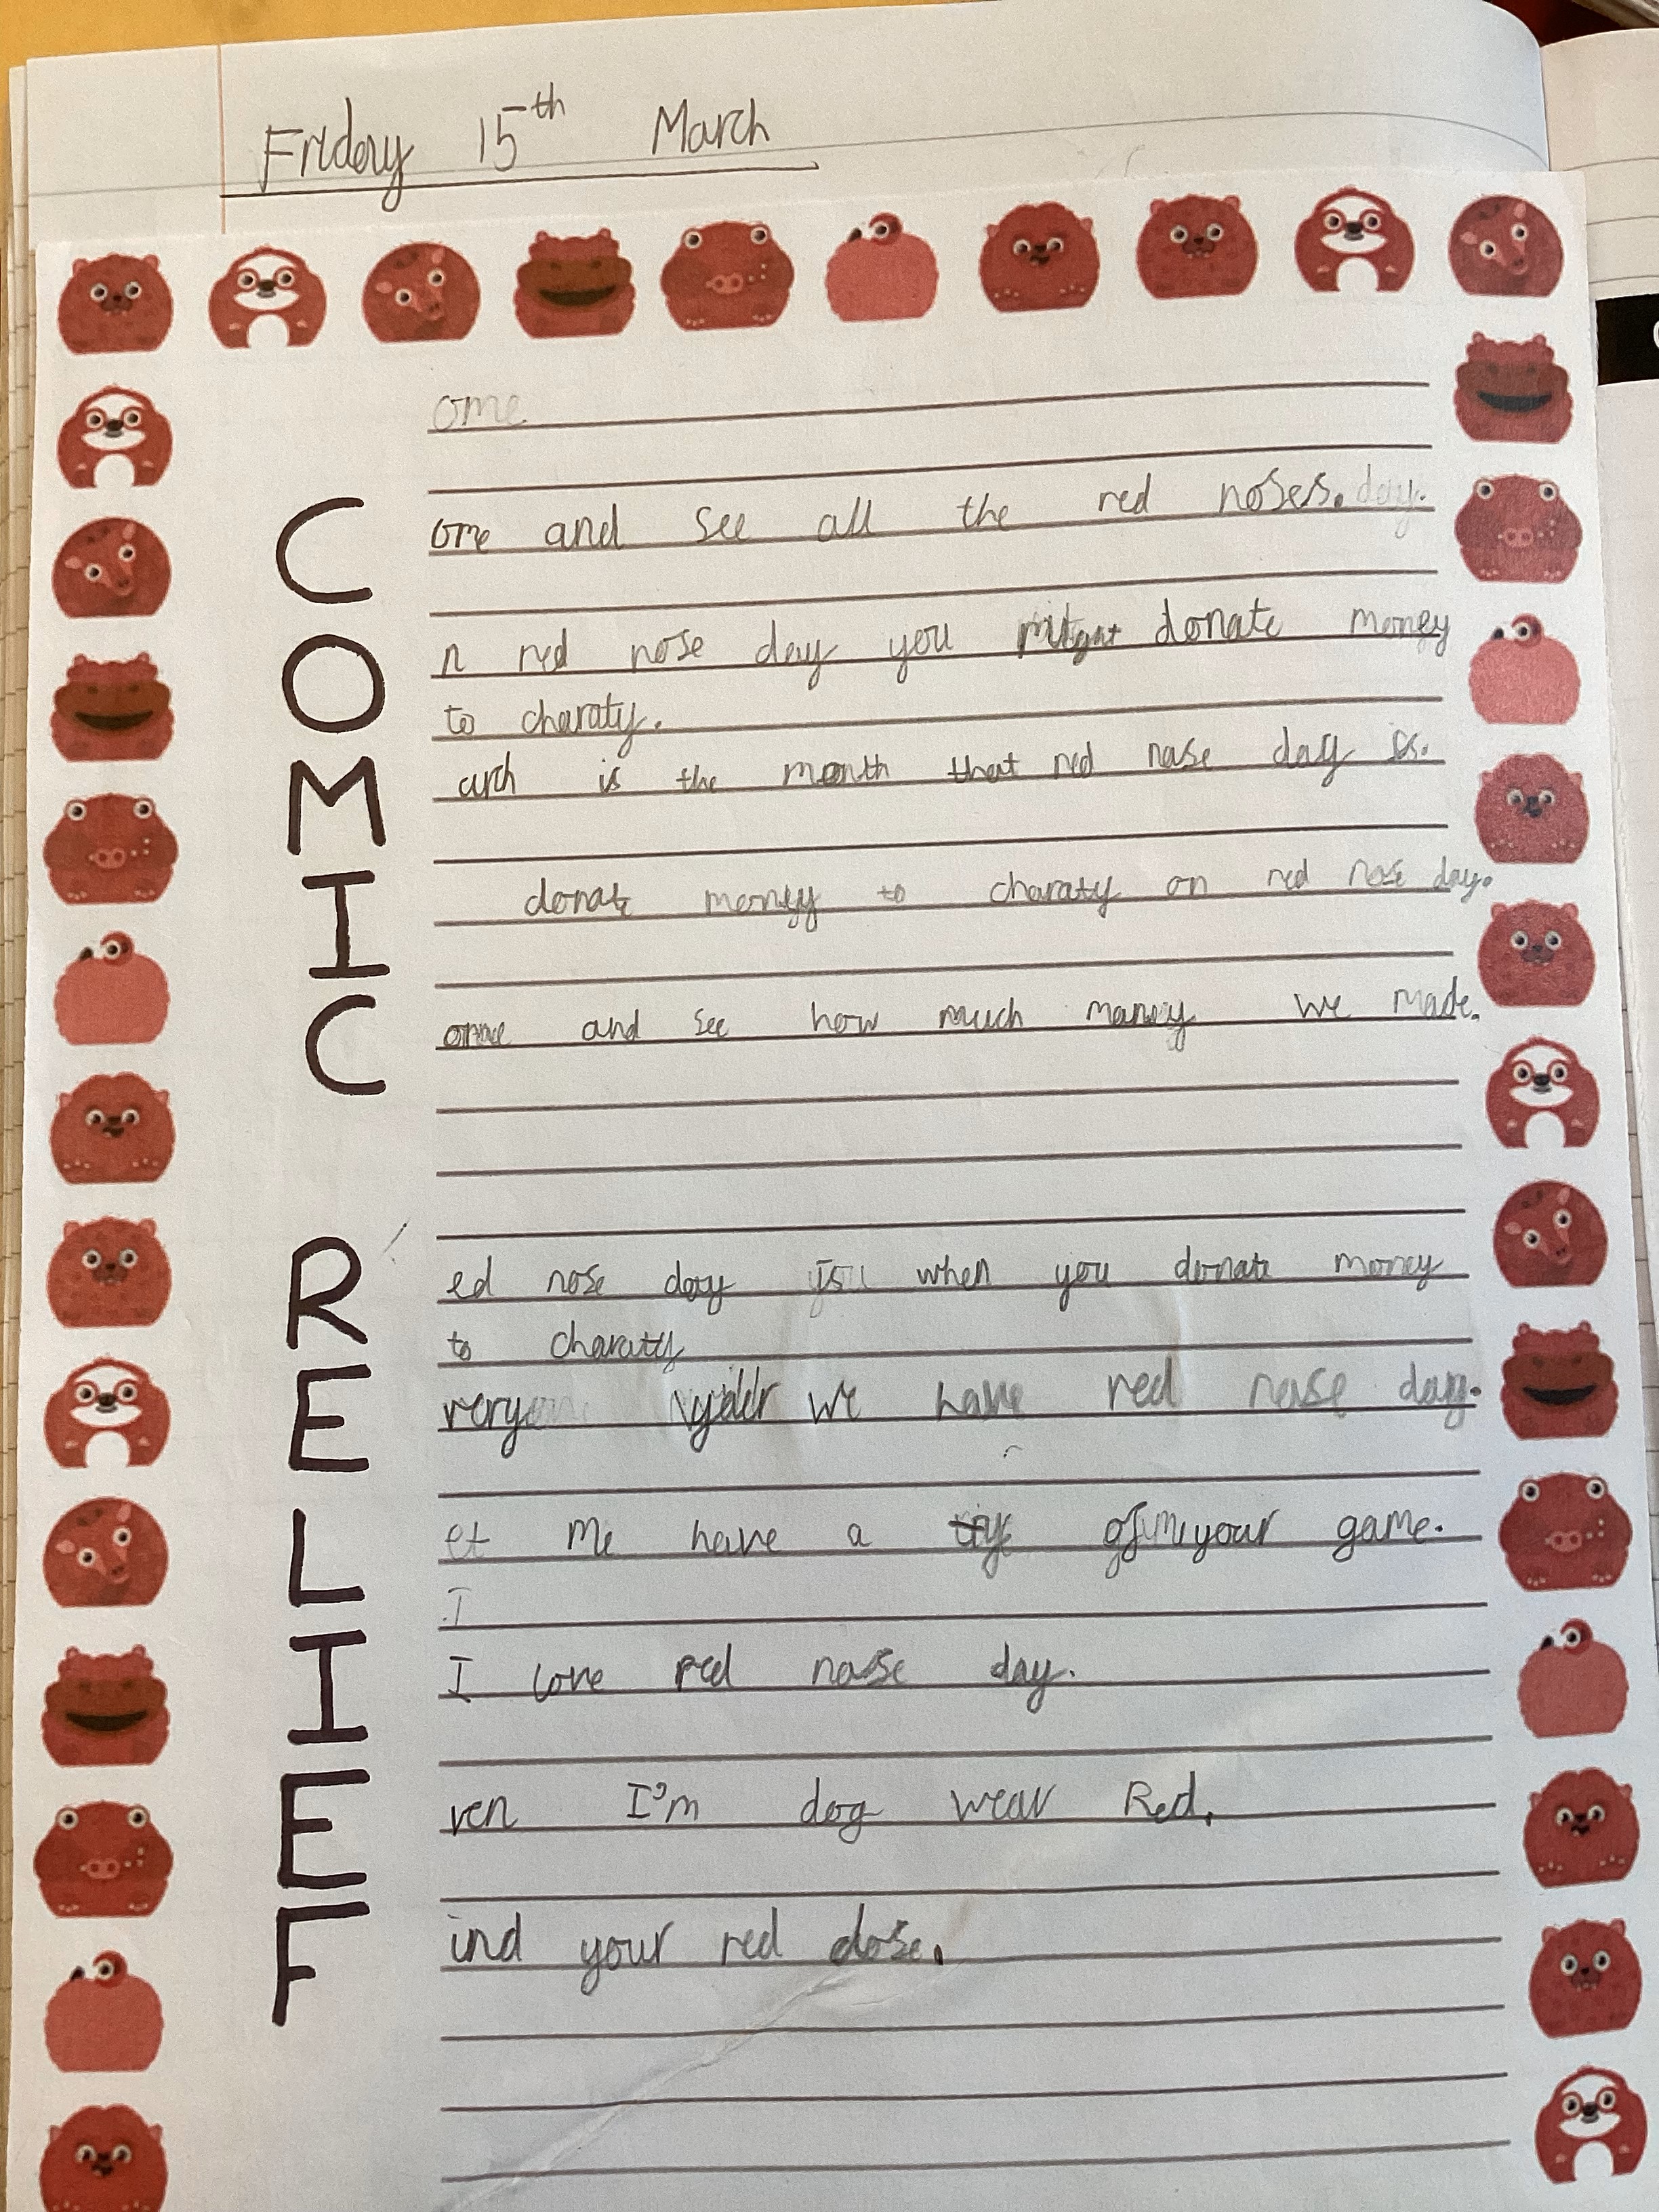 Friday 15th March
ome
C ome and see all the red noses. day.
O n red nose day you donate money
to charaty.
M arch is the month that red nose day is.
I donate money to charaty on red nose day.
C ome and see how much money we made.
R ed nose day is when you donate money
to charaty
E very year we have red nose day.
L et me have a of your game.
I
I I love red nose day.
E ven I'm dog wear Red.
F ind your red dose.